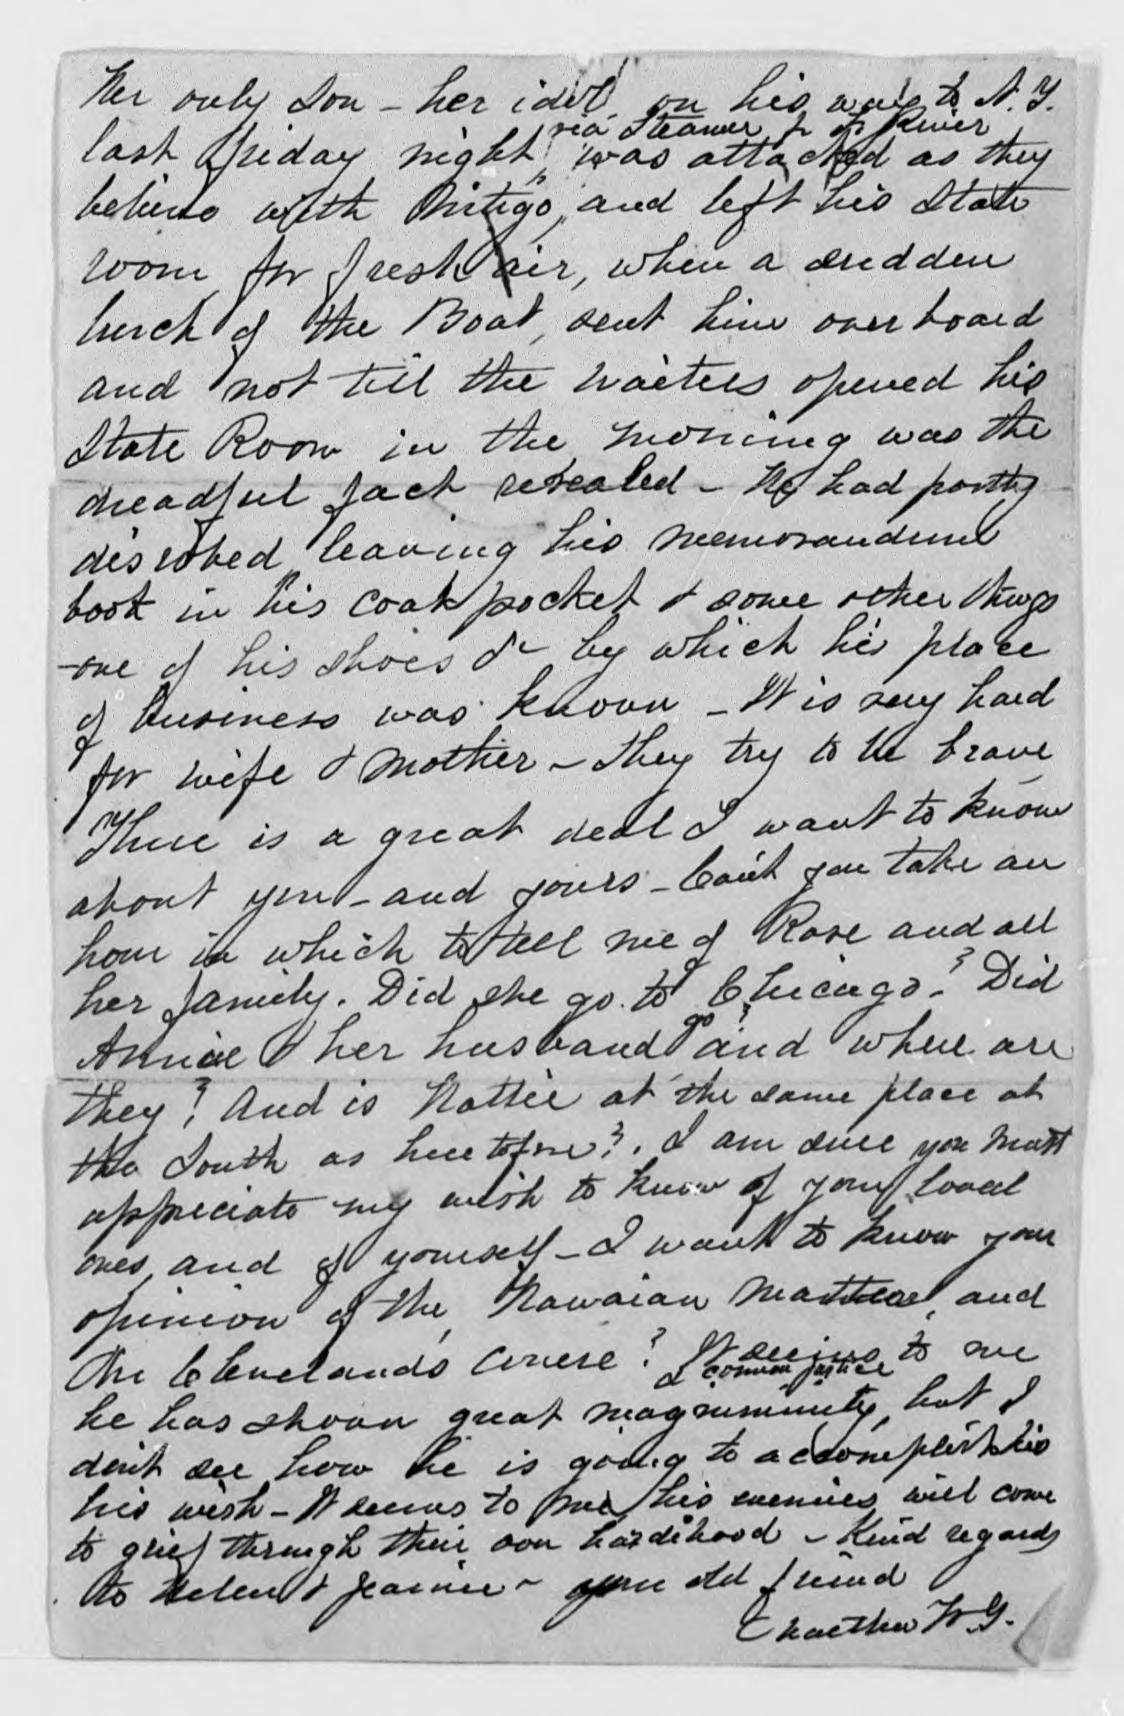 Her only Son - her idol on his way to N. Y.
via Steamer River
last Friday night, was attacked as they
believe with Vitigo, and left his State
room for fresh air, when a sudden
lurch of the Boat, sent him overboard
and not till the waiters opened his
State Room in the morning was the
dreadful fact revealed - He had partly
disrobed leaving his memorandum
book in his coat pocket & some other things
- one of his shoes &c by which his place
of business was known - It is very hard
for wife & mother - they try to be brave
There is a great deal I want to know
about you - and yours - Can't you take an
hour in which to tell me of Rose and all
her family. Did she go to Chicago? Did
Annie & her husband go? and where are
they? And is Hattie at the same place at
the South as heretofore? I am sure you must
appreciate my wish to know of your loved
ones, and of yourself - I want to know your
opinion of the Hawaian matter, and
the Clevelands course? It seems to me
& common justice
he has shown great magnimity, but I
don't see how he is going to accomplish his
his wish - It seems to me his enemies will come
to grief through their own hardihood - Kind regards
to Helen & - your old friend
W. G.